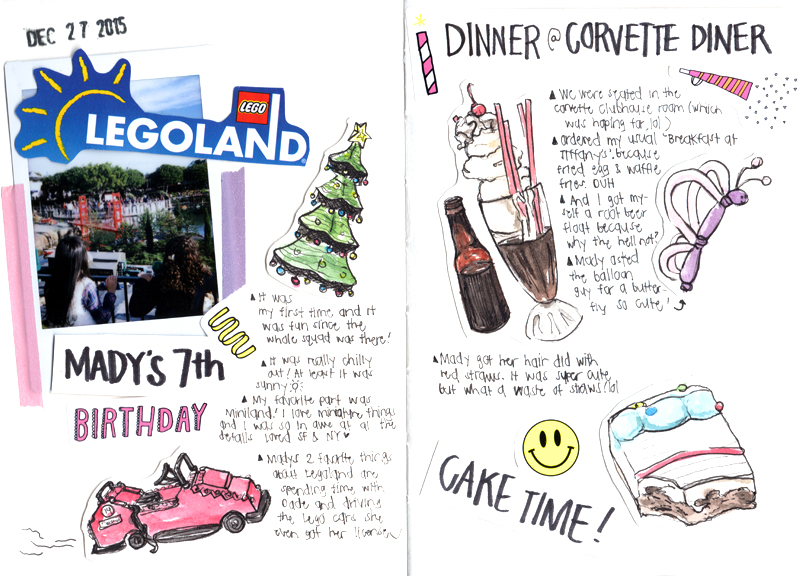 DEC 27 2015
LEGO
LEGOLAND®
▲ It was
my first time, and it
was fun since the
whole squad was there!
▲ It was really chilly
out! At least it was
sunny
▲ My favorite part was
miniland! I love miniature things
and I was so in awe at all the
details loved SF & NY ♥
▲ Madys 2 favorite things
about Legoland are
spending time with
Dade and driving
the lego cars. She
even got her license!
MADY'S 7th
BIRTHDAY
DINNER @ CORVETTE DINER
▲ We were seated in the
corvette clubhouse room (which
was hoping for, lol)
▲ ordered my usual "Breakfast at
Tiffanys" because
fried egg & waffle
fries. DUH
▲ And I got my-
self a root beer
float because
why the hell not?
▲ Mady asked
the balloon
guy for a butter
fly so cute!
▲ Mady got her hair did with
red straws. It was super cute
but what a waste of straws! lol
CAKE TIME!